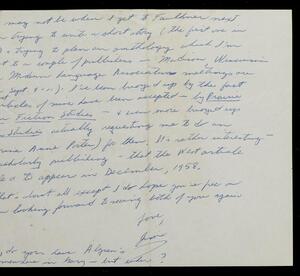 may not be when I get to Faulkner next
trying to write a short story (the first one in
trying to plan an anthology which I'm
to a couple of publishers — McGraw, Wisconsin
Modern Language Association meetings are
Sept. 9-11). I've been buoyed up by the fact
articles of mine have been accepted — by Prairie
Fiction Studies — & even more buoyed up
Studies actually requesting me to do an
Anne Porter) for them. It's rather interesting —
scholarly publishing — that the West article
to appear in December, 1958.
that's about all except I do hope you're free on
looking forward to seeing both of you again
Love,
do you have Algren's
somewhere in Gary — but where?